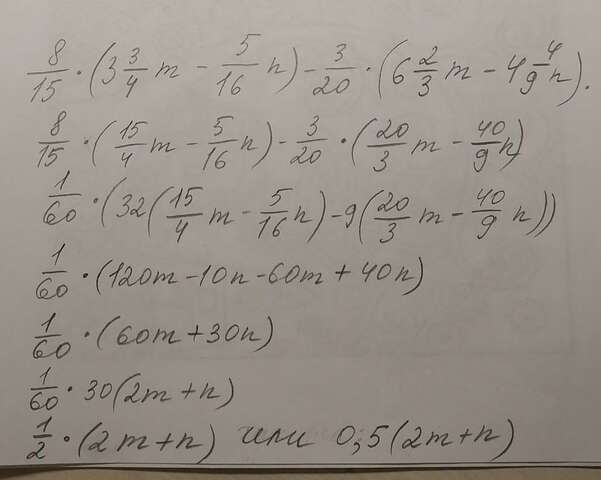 8/15 · (3 3/4 m - 5/16 n) - 3/20 · (6 2/3 m - 4 4/9 n).
8/15 · (15/4 m - 5/16 n) - 3/20 · (20/3 m - 40/9 n)
1/60 · (32(15/4 m - 5/16 n) - 9(20/3 m - 40/9 n))
1/60 · (120m - 10n - 60m + 40n)
1/60 · (60m + 30n)
1/60 · 30(2m + n)
1/2 · (2m + n) или 0,5(2m + n)